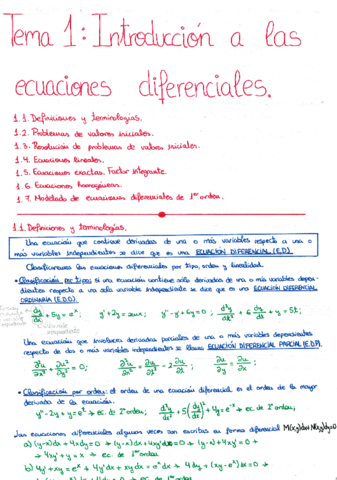 Tema 1: Introducción a las
ecuaciones diferenciales.
1.1. Definiciones y terminologías.
1.2. Problemas de valores iniciales.
1.3. Resolución de problemas de valores iniciales.
1.4. Ecuaciones lineales.
1.5. Ecuaciones exactas. Factor integrante.
1.6. Ecuaciones homogéneas.
1.7. Modelado de ecuaciones diferenciales de 1er orden.
1.1. Definiciones y terminologías.
Una ecuación que contiene derivadas de una o más variables respecto a una o
más variables independientes se dice que es una ECUACIÓN DIFERENCIAL (E.D).
Clasificaremos las ecuaciones diferenciales por tipo, orden y linealidad.
• Clasificación por tipos: si una ecuación contiene sólo derivadas de una o más variables depen-
dientes respecto a una sola variable independiente se dice que es una ECUACIÓN DIFERENCIAL
ORDINARIA (E.D.O).
dy/dx + 5y = eˣ; y' + 2y = senx; y'' - y' + 6y = 0; d²y/dx² + 6 dy/dx + y = 5t;
Una ecuación que involucra derivadas parciales de una o más variables dependientes
respecto de dos o más variables independientes se llama ECUACIÓN DIFERENCIAL PARCIAL (E.D.P).
∂²u/∂x² + ∂²u/∂y² = 0; ∂u/∂y = ∂u/∂x;
• Clasificación por orden: el orden de una ecuación diferencial es el orden de la mayor
derivada de la ecuación.
y'' - 2y + y = eˣ → ec. de 2º orden; d²y/dx² + 5(dy/dx)³ - 4y = e⁻ˣ → ec. de 2º orden;
Las ecuaciones diferenciales algunas veces son escritas en forma diferencial M(x,y)dx+N(x,y)dy=0
a) (y-x)dx + 4xdy = 0 → (y-x)dx + 4xy'dx = 0 → (y-x) + 4xy' = 0 →
→ 4xy' + y = x → ec. de 1er orden
b) 4y' + xy = eˣ → 4y'dx + xydx = eˣdx → 4dy + (xy-eˣ)dx = 0 →